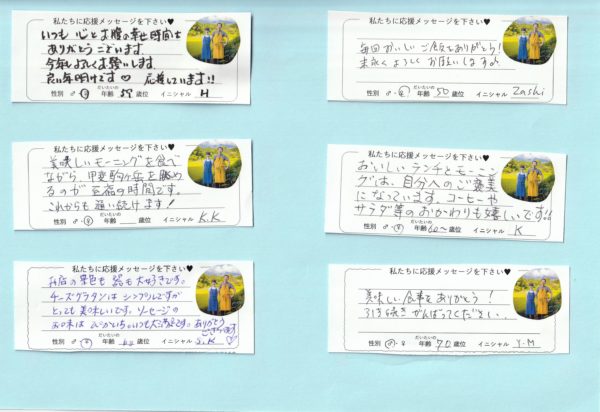 私たちに応援メッセージを下さい♥
いつも心とお腹の幸せ時間を
ありがとうございます
今年もよろしくお願いします。
良い年明けです♡ 応援しています!!
性別 ♂・♀ だいたいの年齢 歳位 イニシャル H
私たちに応援メッセージを下さい♥
美味しいモーニングを食べ
ながら、甲斐駒ヶ岳を眺め
るのが至福の時間です。
これからも通い続けます!
性別 ♂・♀ だいたいの年齢 歳位 イニシャル K.K
私たちに応援メッセージを下さい♥
お店の景色も 器も大好きです。
チーズグラタンは シンプルですが
とっても美味しいです。ソーセージの
お味は ぴかいち。いつも大満足です。ありがとう
ございます♡
性別 ♂・♀ だいたいの年齢 歳位 イニシャル S.K
私たちに応援メッセージを下さい♥
毎回おいしいご飯をありがとう!
末永くよろしくお願いします♪
性別 ♂・♀ だいたいの年齢 50 歳位 イニシャル Zashi
私たちに応援メッセージを下さい♥
おいしいランチとモーニン
グは、自分へのご褒美
になっています。コーヒーや
サラダ等のおかわりも嬉しいです!!
性別 ♂・♀ だいたいの年齢 60~ 歳位 イニシャル K
私たちに応援メッセージを下さい♥
美味しい食事をありがとう!
引き続きがんばってください.
性別 ♂・♀ だいたいの年齢 70 歳位 イニシャル Y.M